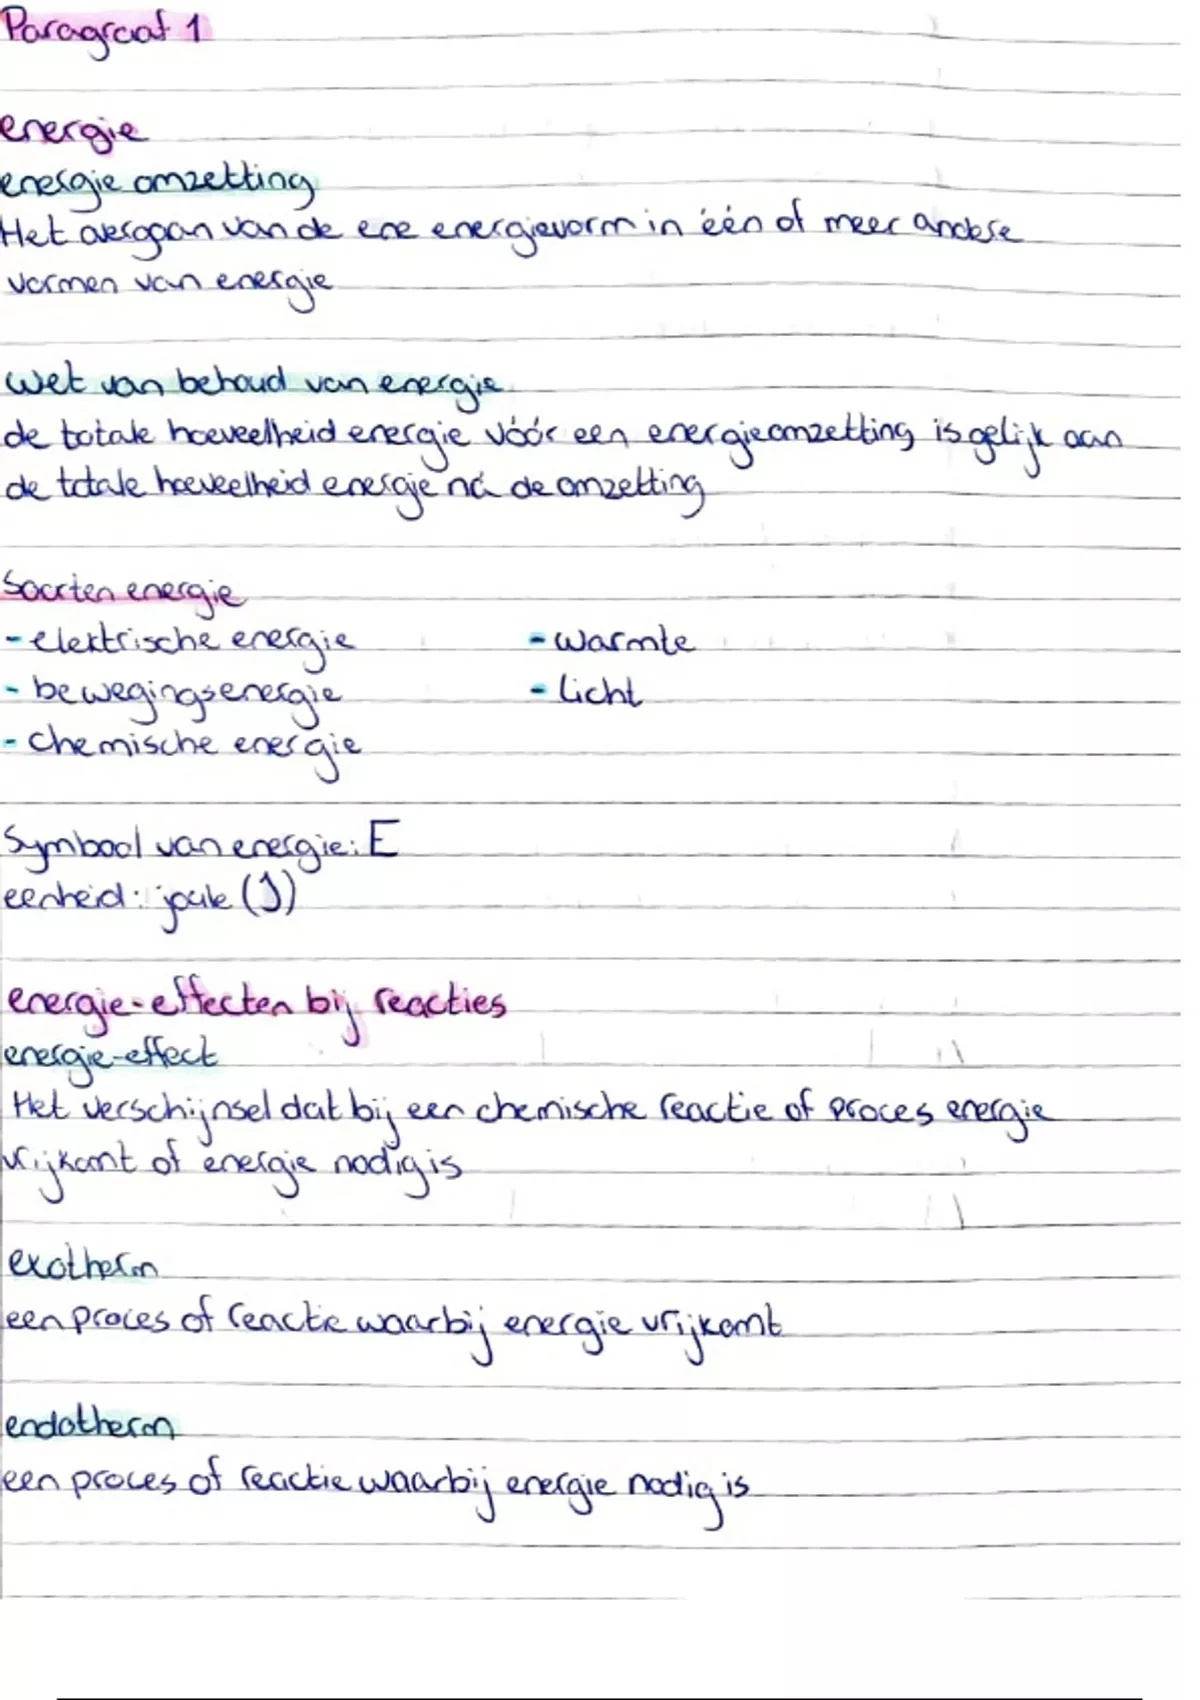 Paragraaf 1
energie
energie omzetting
Het overgaan van de ene energievorm in één of meer andere
vormen van energie
wet van behoud van energie
de totale hoeveelheid energie vóór een energieomzetting is gelijk aan
de totale hoeveelheid energie ná de omzetting
Soorten energie
- elektrische energie - warmte
- bewegingsenergie - licht
- chemische energie
Symbool van energie: E
eenheid: joule (J)
energie-effecten bij reacties
energie-effect
Het verschijnsel dat bij een chemische reactie of proces energie
vrijkomt of energie nodig is
exotherm
een proces of reactie waarbij energie vrijkomt
endotherm
een proces of reactie waarbij energie nodig is